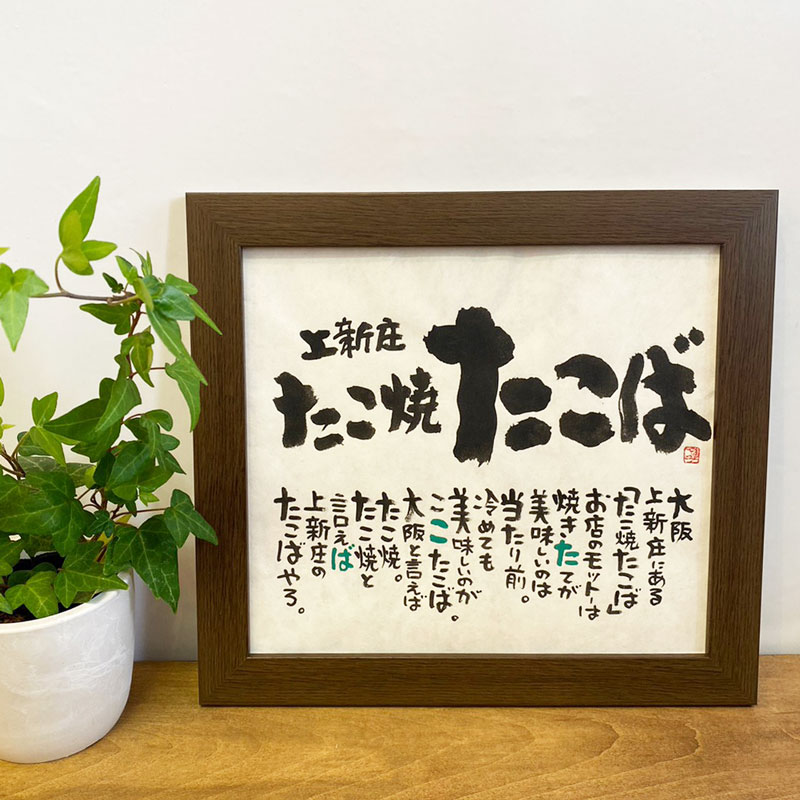 上新庄
たこ焼
たこば
大阪
上新庄にある
「たこ焼たこば」
お店のモットーは
焼きたてが
美味しいのは
当たり前。
冷めても
美味しいのが
ここたこば。
大阪と言えば
たこ焼。
たこ焼と
言えば
上新庄の
たこばやろ。